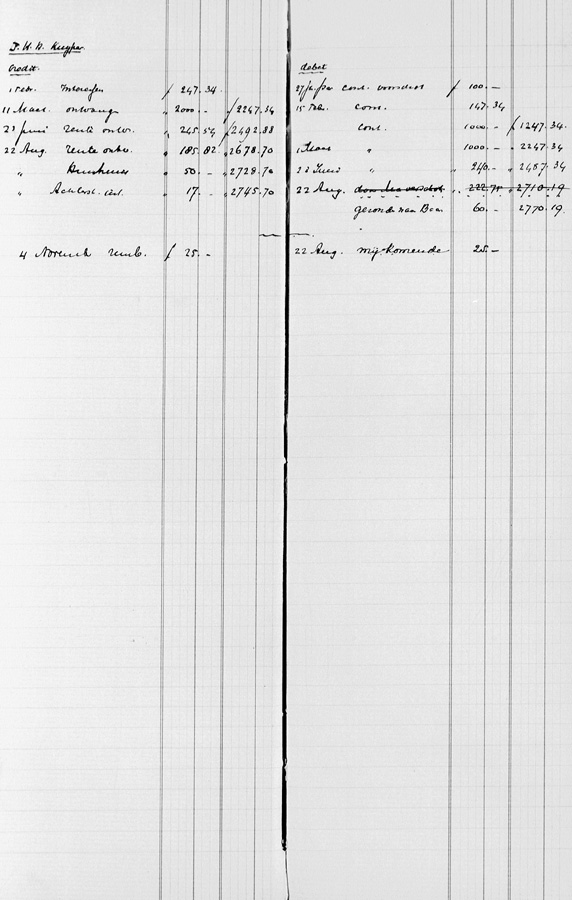 J. H. H. Kuyper.
Credit.
1 Febr. Interessen f 247.34.
11 Maart. ontvangen „ 2000.- f 2247.34
23 Juni rente ontv. „ 245.54 f 2492.88
22 Aug. rente ontv. „ 185.82 „ 2678.70
„ Huishuur „ 50.- „ 2728.70
„ „ 17.- „ 2745.70
4 Novemb. Remb. f 25.-
debet
cont. voorschot f 100.-
15 Febr. cont. 147.34
cont. 1000.- f 1247.34.
1 Maart „ 1000.- „ 2247.34
23 Juni „ 240.- „ 2487.34
22 Aug. 222.75 „ 2710.19
60.- 2770.19.
22 Aug. mij Komende 25.-